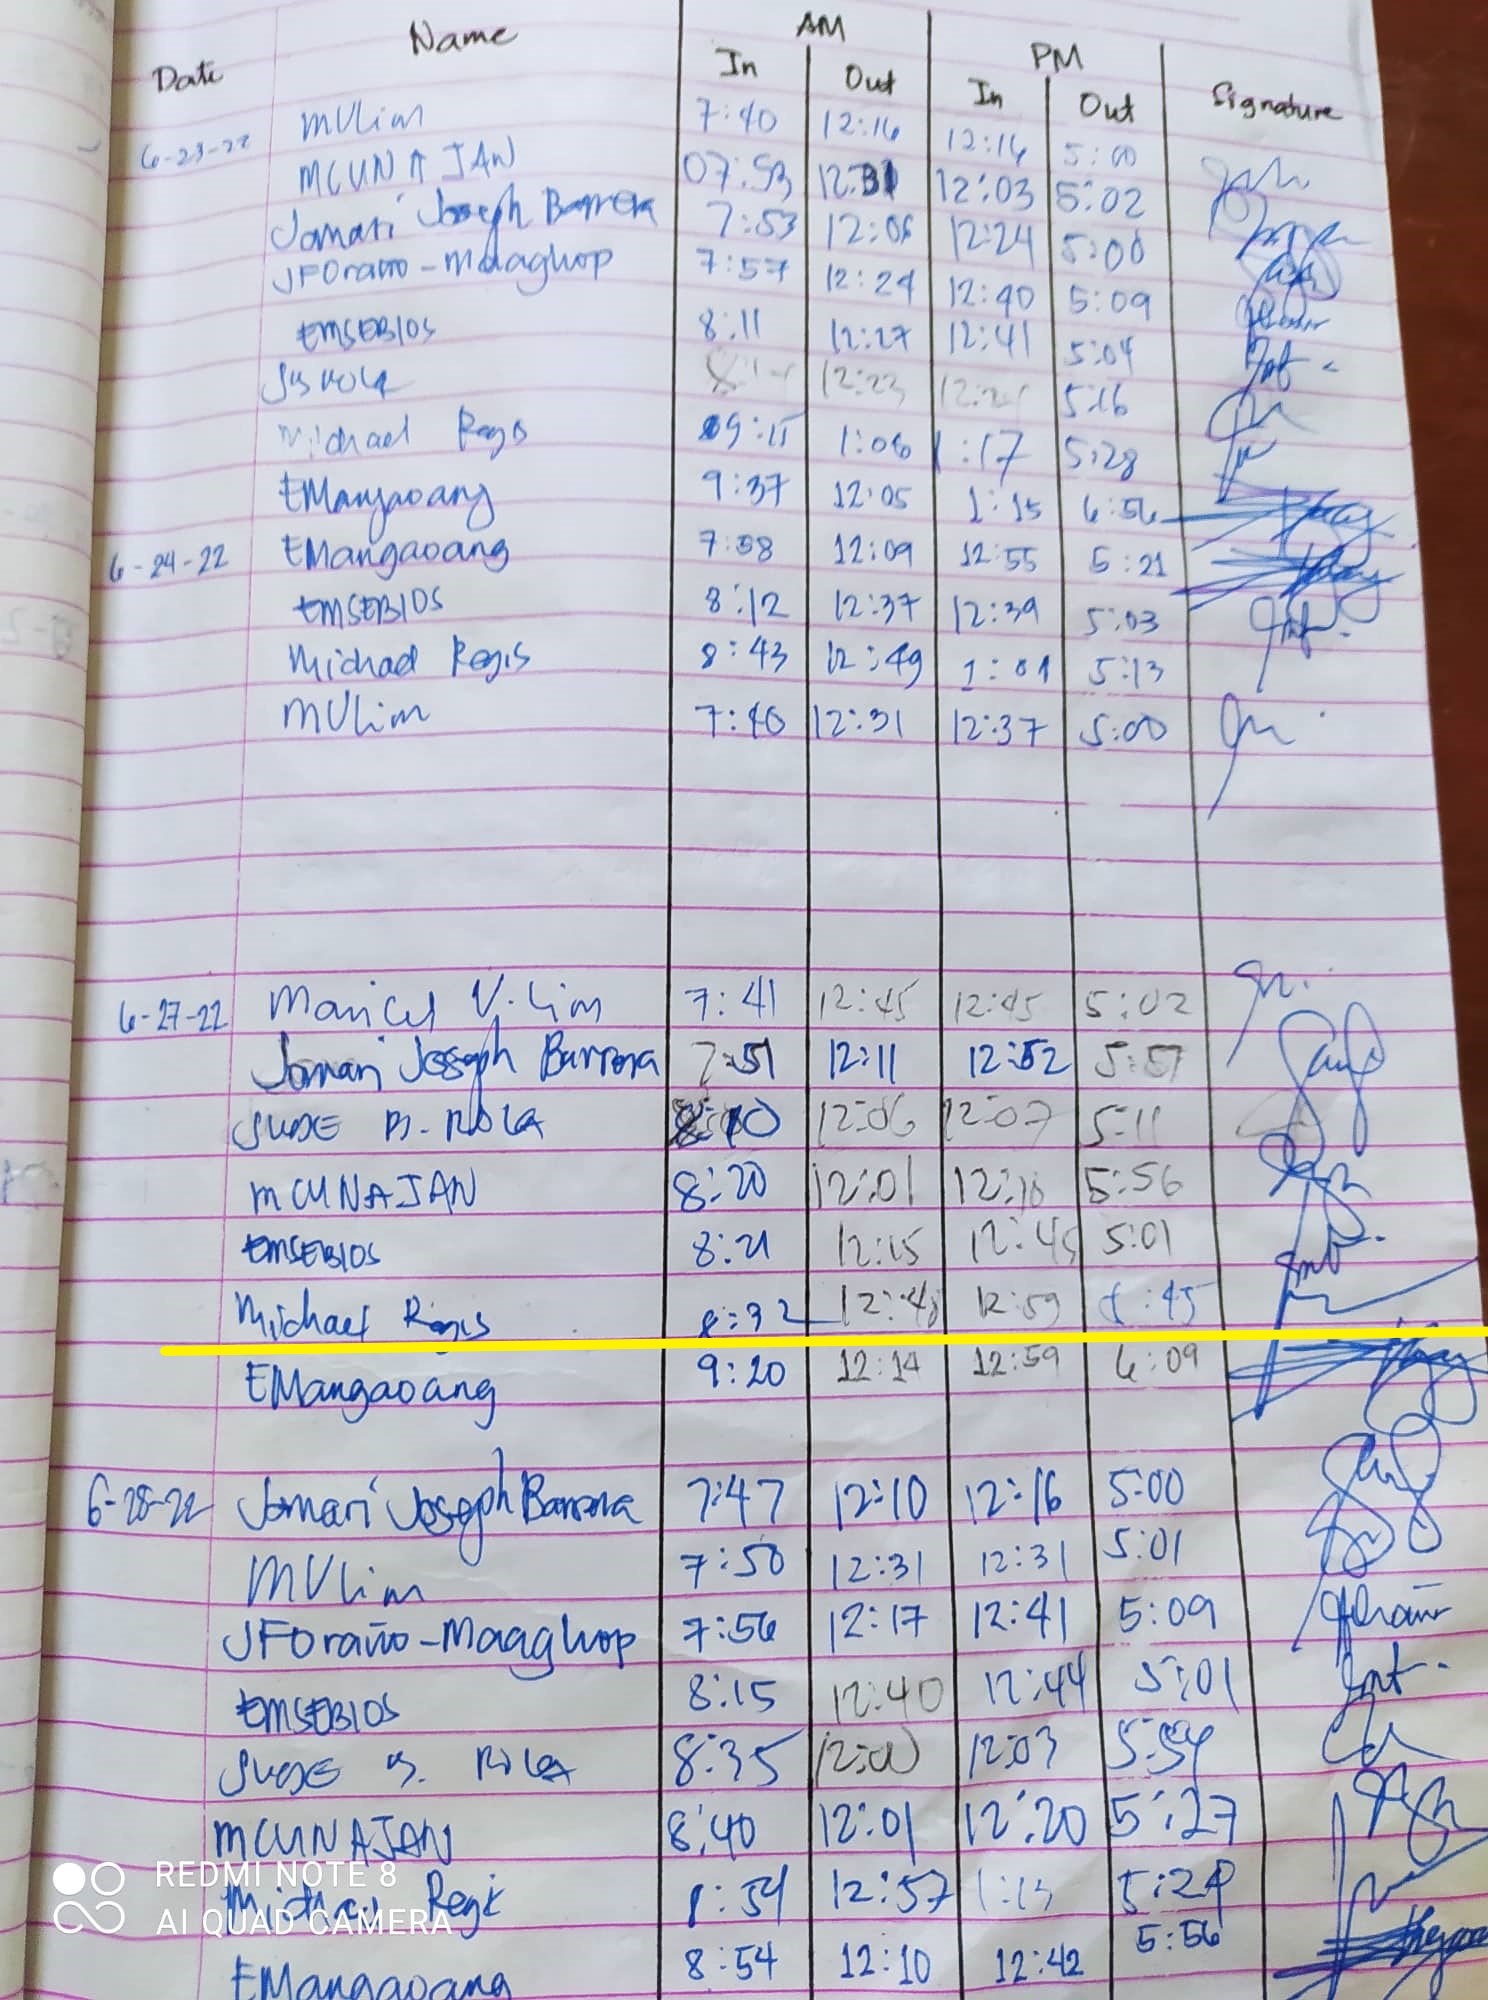 Date Name AM PM Signature
In Out In Out
6-23-22 MVLim 7:40 12:16 12:16 5:00
MCUNAJAN 07:53 12:03 5:02
Jomari Joseph Barrera 7:53 12:06 12:24 5:00
JFOraño-Maaghop 7:57 12:24 12:40 5:09
EMSEBIOS 8:11 12:27 12:41 5:04
12:23 5:16
Michael Regis 09:15 1:06 1:17 5:28
EMangaoang 9:37 12:05 1:15 6:56
6-24-22 EMangaoang 7:58 12:09 12:55 5:21
EMSEBIOS 8:12 12:37 12:39 5:03
Michael Regis 8:43 12:49 1:01 5:13
MVLim 7:40 12:31 12:37 5:00
6-27-22 Maricel V. Lim 7:41 12:45 12:45 5:02
Jomari Joseph Barrera 7:51 12:11 12:52 5:57
JUDE B. ROLA 8:10 12:06 12:07 5:11
MCUNAJAN 8:20 12:01 12:18 5:56
EMSEBIOS 8:21 12:15 12:45 5:01
Michael Regis 8:32 12:48 12:59 :45
EMangaoang 9:20 12:14 12:59 6:09
6-28-22 Jomari Joseph Barrera 7:47 12:10 12:16 5:00
MVLim 7:50 12:31 12:31 5:01
JFOraño-Maaghop 7:56 12:17 12:41 5:09
EMSEBIOS 8:15 12:40 12:44 5:01
JUDE B. ROLA 8:35 12:00 12:03 5:54
MCUNAJAN 8:40 12:01 12:20 5:27
Michael Regis 8:54 12:57 1:13 5:24
EMangaoang 8:54 12:10 12:42 5:56
REDMI NOTE 8
AI QUAD CAMERA